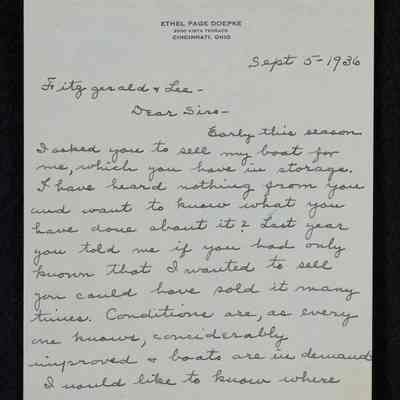 ETHEL PAGE DOEPKE
VISTA TERRACE
CINCINNATI, OHIO
Sept 5-1936
Fitzgerald & Lee -
Dear Sirs-
Early this season
I asked you to sell my boat for
me, which you have in storage.
I have heard nothing from you
and want to know what you
have done about it? Last year
you told me if you had only
known that I wanted to sell
you could have sold it many
times. Conditions are, as every
one knows, conciderably
improved & boats are in demand
I would like to know where